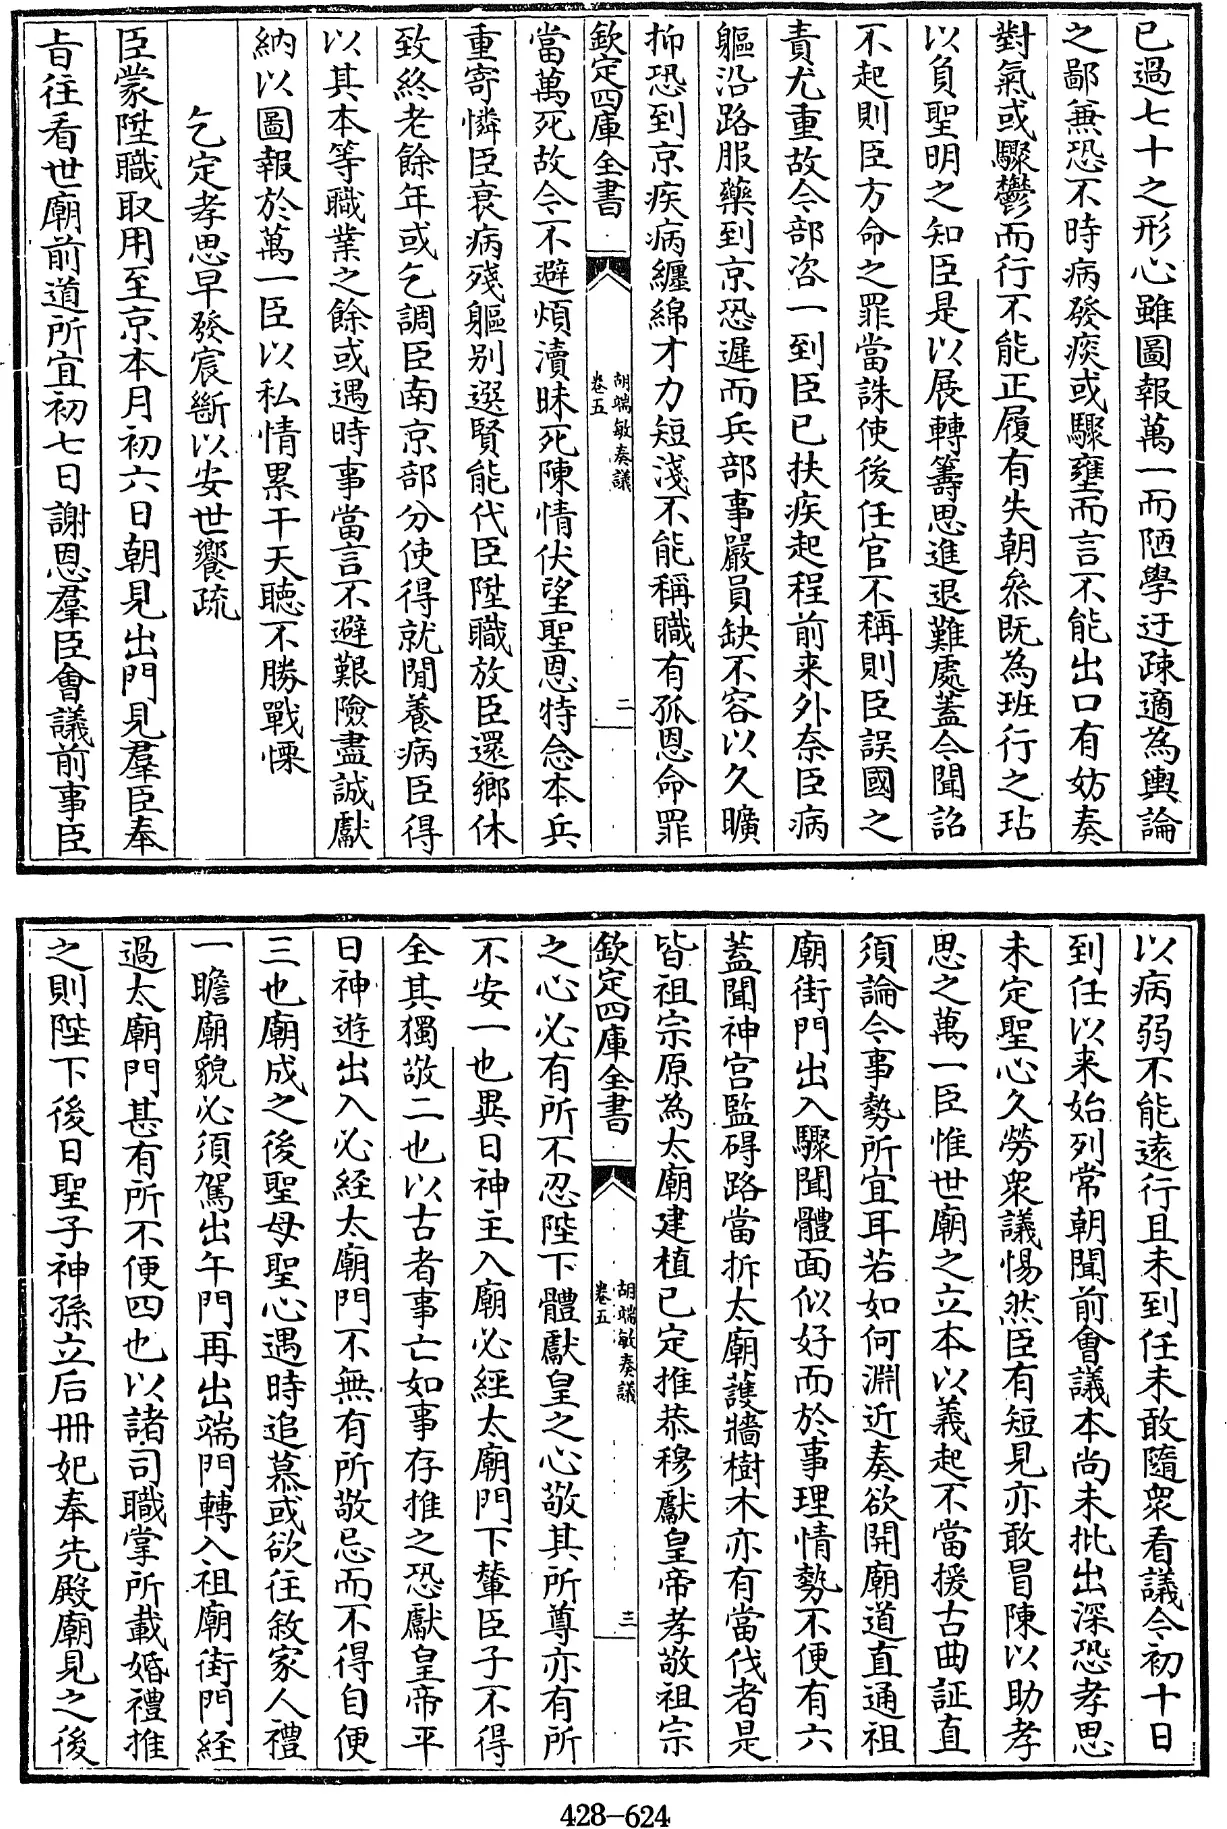 已過七十之形心雖圖報萬一而陋學迂疎適為輿論
之鄙兼恐不時病發痰或驟壅而言不能出口有妨奏
對氣或驟鬱而行不能正履有失朝叅既為班行之玷
以負聖明之知臣是以展轉籌思進退難處蓋今聞詔
不起則臣方命之罪當誅使後任官不稱則臣誤國之
責尤重故令部咨一到臣已扶疾起程前来外奈臣病
軀沿路服藥到京恐遲而兵部事嚴員缺不容以久曠
抑恐到京疾病纒綿才力短淺不能稱職有孤恩命罪
欽定四庫全書
胡端敏奏議
卷五
二
當萬死故今不避煩瀆昧死陳情伏望聖恩特念本兵
重寄憐臣衰病殘軀别選賢能代臣陞職放臣還鄉休
致終老餘年或乞調臣南京部分使得就閒養病臣得
以其本等職業之餘或遇時事當言不避艱險盡誠獻
納以圖報於萬一臣以私情累干天聽不勝戰慄
乞定孝思早發宸斷以安世饗疏
臣蒙陞職取用至京本月初六日朝見出門見羣臣奉
㫖往看世廟前道所宜初七日謝恩羣臣會議前事臣
以病弱不能遠行且未到任未敢隨衆看議今初十日
到任以来始列常朝聞前會議本尚未批出深恐孝思
未定聖心久勞衆議惕然臣有短見亦敢冒陳以助孝
思之萬一臣惟世廟之立本以義起不當援古曲証直
須論今事勢所宜耳若如何淵近奏欲開廟道直通祖
廟街門出入驟聞體面似好而於事理情勢不便有六
蓋聞神宫監碍路當拆太廟護牆樹木亦有當伐者是
皆祖宗原為太廟建植已定推恭穆獻皇帝孝敬祖宗
欽定四庫全書
胡端敏奏議
卷五
三
之心必有所不忍陛下體獻皇之心敬其所尊亦有所
不安一也異日神主入廟必經太廟門下輦臣子不得
全其獨敬二也以古者事亡如事存推之恐獻皇帝平
日神遊出入必經太廟門不無有所敬忌而不得自便
三也廟成之後聖母聖心遇時追慕或欲往敘家人禮
一瞻廟貌必須駕出午門再出端門轉入祖廟街門經
過太廟門甚有所不便四也以諸司職掌所載婚禮推
之則陛下後日聖子神孫立后冊妃奉先殿廟見之後
428-624